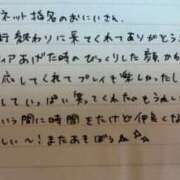 ネット指名のおにいさん。
行終わりに来てくれてありがとう
ィアあげた時のびっくりした顔から
応してくれてプレイを楽しかったし
して、いっぱい笑ってくれたのもうれし
いう間に時間をたけど仲良くな
しい〜!またあそぼう